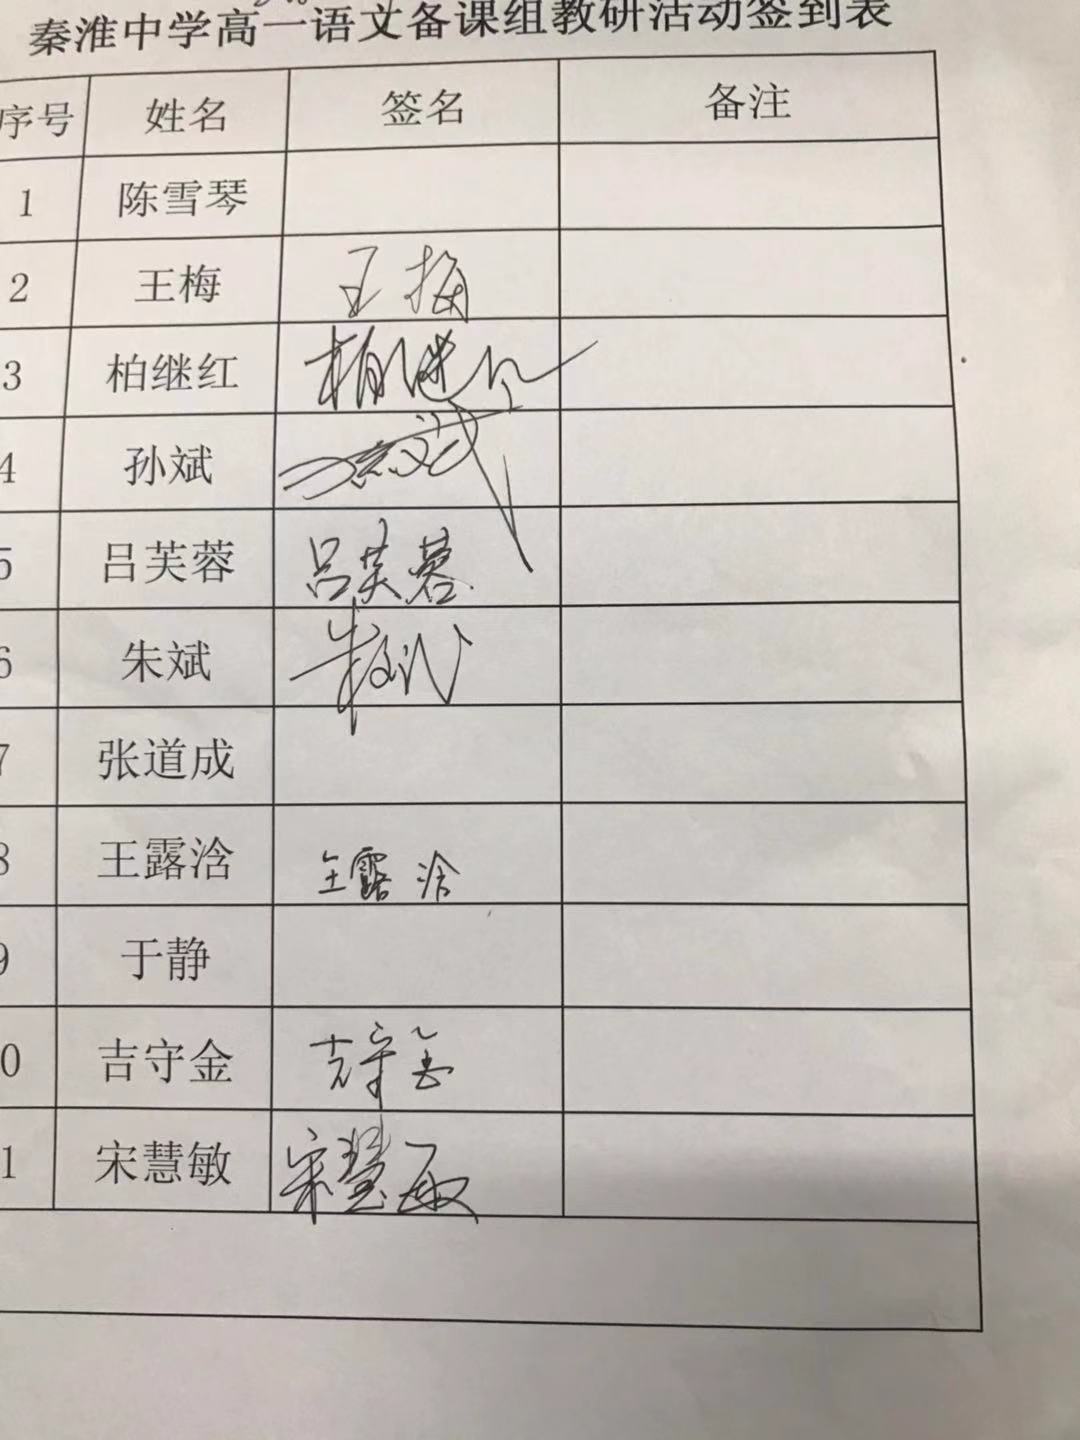 秦淮中学高一语文备课组教研活动签到表
序号 姓名 签名 备注
1 陈雪琴
2 王梅 王梅
3 柏继红 柏继红
4 孙斌 孙斌
5 吕芙蓉 吕芙蓉
6 朱斌 朱斌
7 张道成
8 王露浛 王露浛
9 于静
0 吉守金 吉守金
1 宋慧敏 宋慧敏